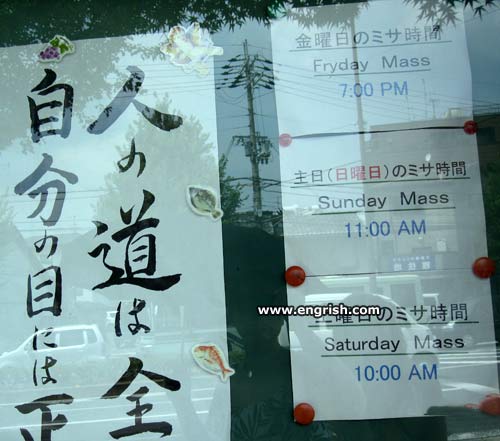 人の道は全
自分の目には正
金曜日のミサ時間
Fryday Mass
7:00 PM
主日(日曜日)のミサ時間
Sunday Mass
11:00 AM
www.engrish.com
土曜日のミサ時間
Saturday Mass
10:00 AM